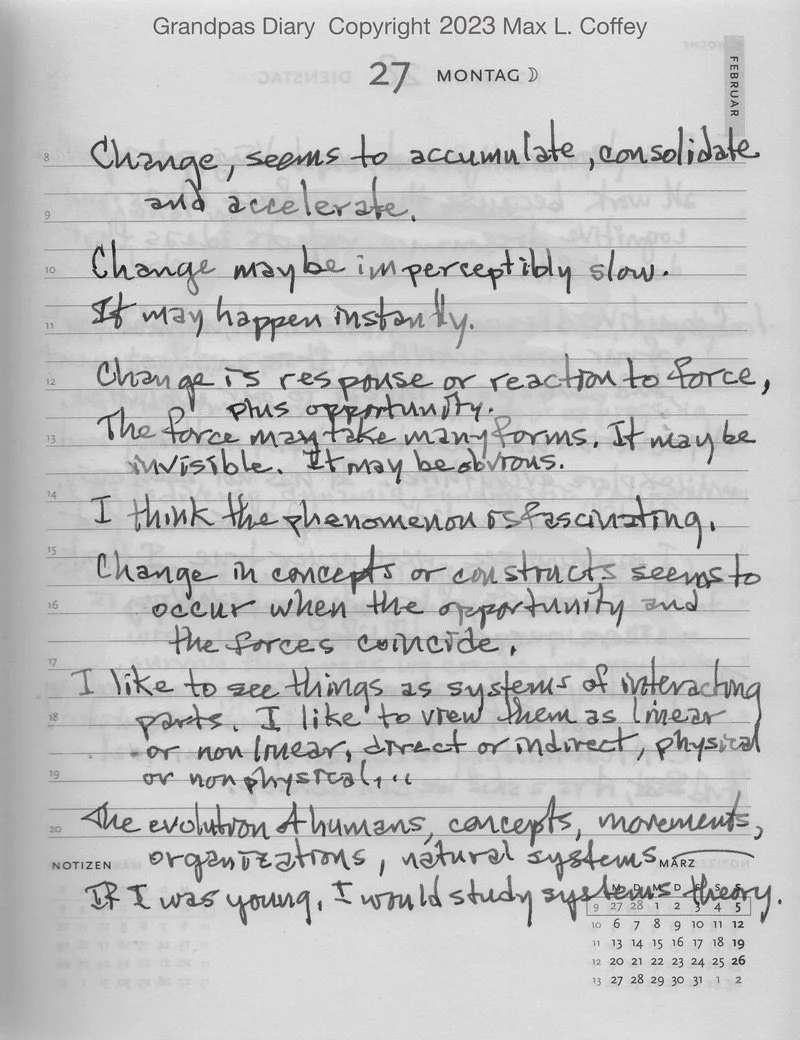 Grandpas Diary Copyright 2023 Max L. Coffey
27 MONTAG
FEBRUAR
8 Change, seems to accumulate, consolidate
and accelerate.
9
10 Change may be imperceptibly slow.
11 It may happen instantly.
12 Change is response or reaction to force,
plus opportunity.
13 The force may take many forms. It may be
invisible. It may be obvious.
14 I think the phenomenon is fascinating.
15 Change in concepts or constructs seems to
16 occur when the opportunity and
the forces coincide.
17 I like to see things as systems of interacting
18 parts. I like to view them as linear
or non linear, direct or indirect, physical
19 or non physical...
20 The evolution of humans, concepts, movements,
NOTIZEN organizations, natural systems MÄRZ
If I was young, I would study systems theory.
M D M D F S S
9 27 28 1 2 3 4 5
10 6 7 8 9 10 11 12
11 13 14 15 16 17 18 19
12 20 21 22 23 24 25 26
13 27 28 29 30 31 1 2